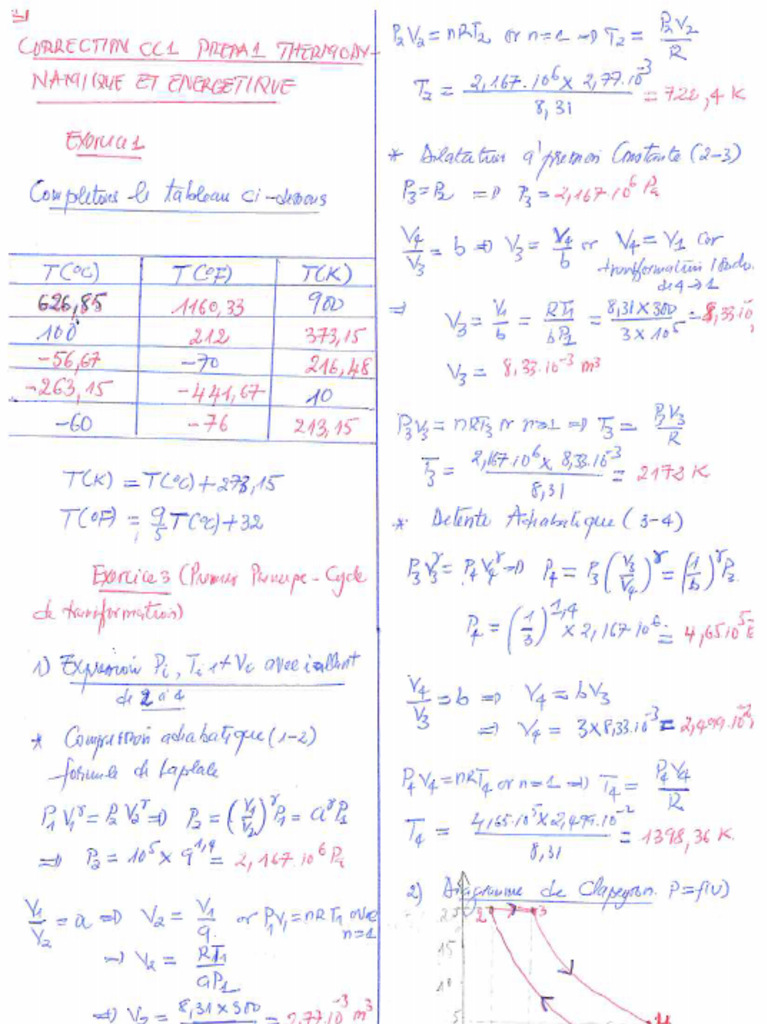 CORRECTION CC1 PREPA1 THERMODY-
NAMIQUE ET ENERGETIQUE
Exercice 1
Complétons le tableau ci-dessous
T(°C) T(°F) T(K)
626,85 1160,33 900
100 212 373,15
-56,67 -70 216,48
-263,15 -441,67 10
-60 -76 213,15
T(K) = T(°C) + 273,15
T(°F) = 9/5 T(°C) + 32
Exercice 3 (Premier Principe - Cycle
de transformation)
1) Expression Pi, Ti et Vi avec i allant
de 2 à 4
* Compression adiabatique (1-2)
formule de Laplace
P1 V1^γ = P2 V2^γ ⇒ P2 = (V1/V2)^γ P1 = a^γ P1
⇒ P2 = 10^5 × 9^1,4 = 2,167.10^6 Pa
V1/V2 = a ⇒ V2 = V1/a or P1V1 = nRT1 avec
n=1
⇒ V2 = RT1/aP1
⇒ V2 = 8,31 × 300 = 2,77.10^-3 m³
P2 V2 = nRT2 or n=1 ⇒ T2 = P2V2/R
T2 = 2,167.10^6 × 2,77.10^-3 / 8,31 = 722,4 K
* Dilatation à pression Constante (2-3)
P3 = P2 ⇒ P3 = 2,167.10^6 Pa
V4/V3 = b ⇒ V3 = V4/b or V4 = V1 car
transformation isocho.
de 4 → 1
⇒ V3 = V1/b = RT1/bP1 = 8,31 × 300 / 3 × 10^5 = 8,33.10
V3 = 8,33.10^-3 m³
P3V3 = nRT3 or n=1 ⇒ T3 = P3V3/R
T3 = 2,167.10^6 × 8,33.10^-3 / 8,31 = 2172 K
* Detente Adiabatique (3-4)
P3V3^γ = P4V4^γ ⇒ P4 = P3 (V3/V4)^γ = (1/b)^γ P3
P4 = (1/3)^1,4 × 2,167.10^6 = 4,65.10^5
V4/V3 = b ⇒ V4 = bV3
⇒ V4 = 3 × 8,33.10^-3 = 2,499.10^-2
P4V4 = nRT4 or n=1 ⇒ T4 = P4V4/R
T4 = 4,65.10^5 × 2,499.10^-2 / 8,31 = 1398,36 K
2) Diagramme de Clapeyron P=f(V)
2 3
15
10
5
4